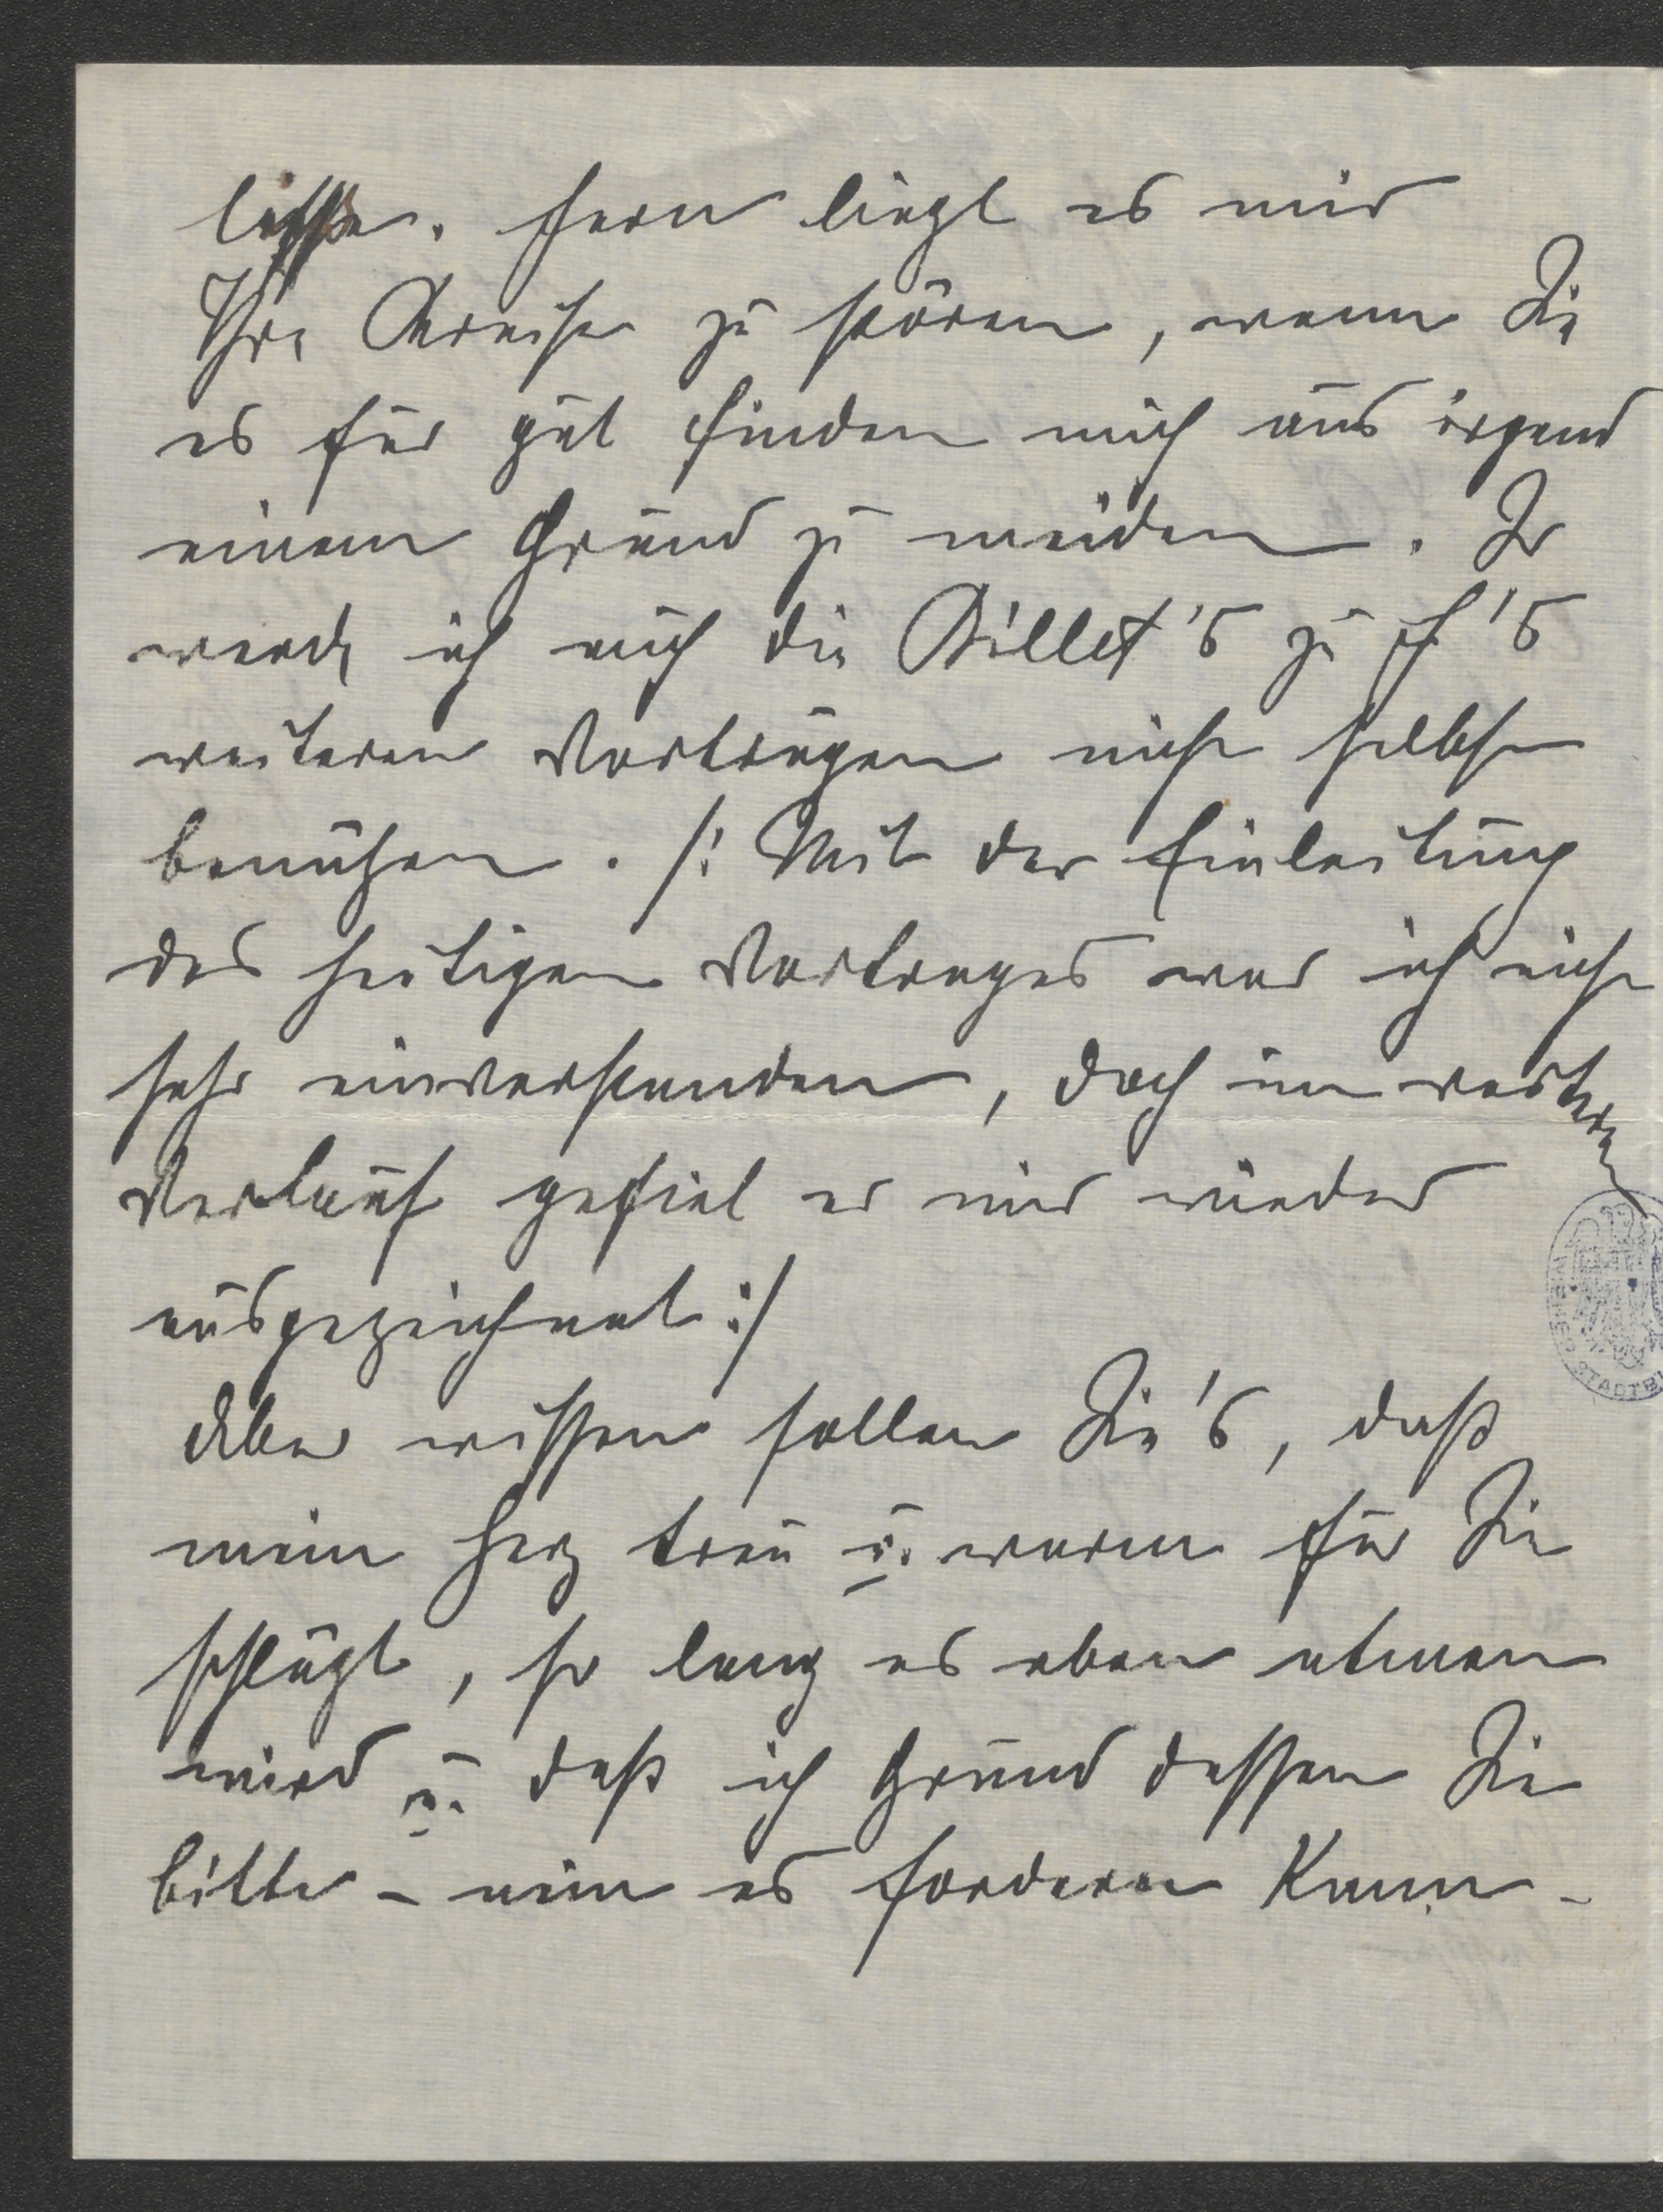 lasse. Fern liegt es mir
Ihre Kreise zu stören, wenn Sie
es für gut finden mich aus irgend
einem Grund zu meiden. So
werde ich auch die Billet's zu F.'s
weiteren Vorträgen nicht selbst
benützen. /: Mit der Einleitung
des heutigen Vortrages war ich nicht
sehr einverstanden, doch im weiteren
Verlauf gefiel er mir wieder
ausgezeichnet :/
Aber wissen sollen Sie's, daß
mein Herz treu u. warm für Sie
schlägt, so lang es eben atmen
wird u. daß ich Grund dessen Sie
bitte – nein es fordern kann –